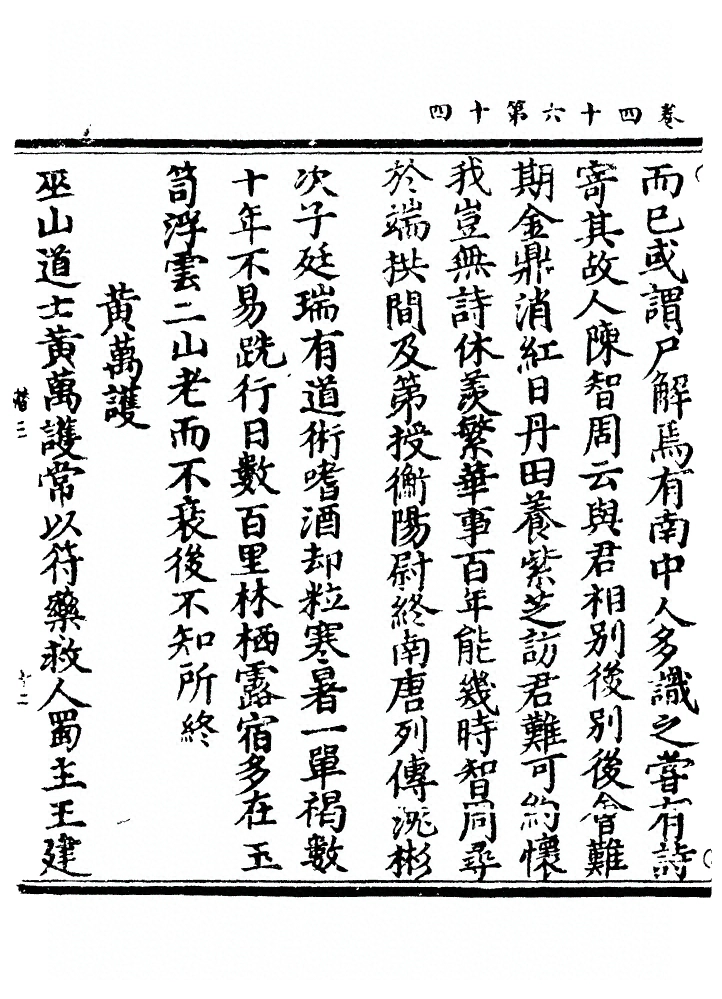 卷四十六第十四
而已或謂尸解焉有南中人多識之嘗有詩
寄其故人陳智周云與君相別後別後會難
期金鼎消紅日丹田養紫芝訪君難可約懷
我豈無詩休羨繁華事百年能幾時智周尋
於端拱間及第授衡陽尉終南唐列傳沈彬
次子廷瑞有道術嗜酒却粒寒暑一單褐數
十年不易跣行日數百里林栖露宿多在玉
笥浮雲二山老而不衰後不知所終
黃萬護
巫山道士黃萬護常以符藥救人蜀主王建